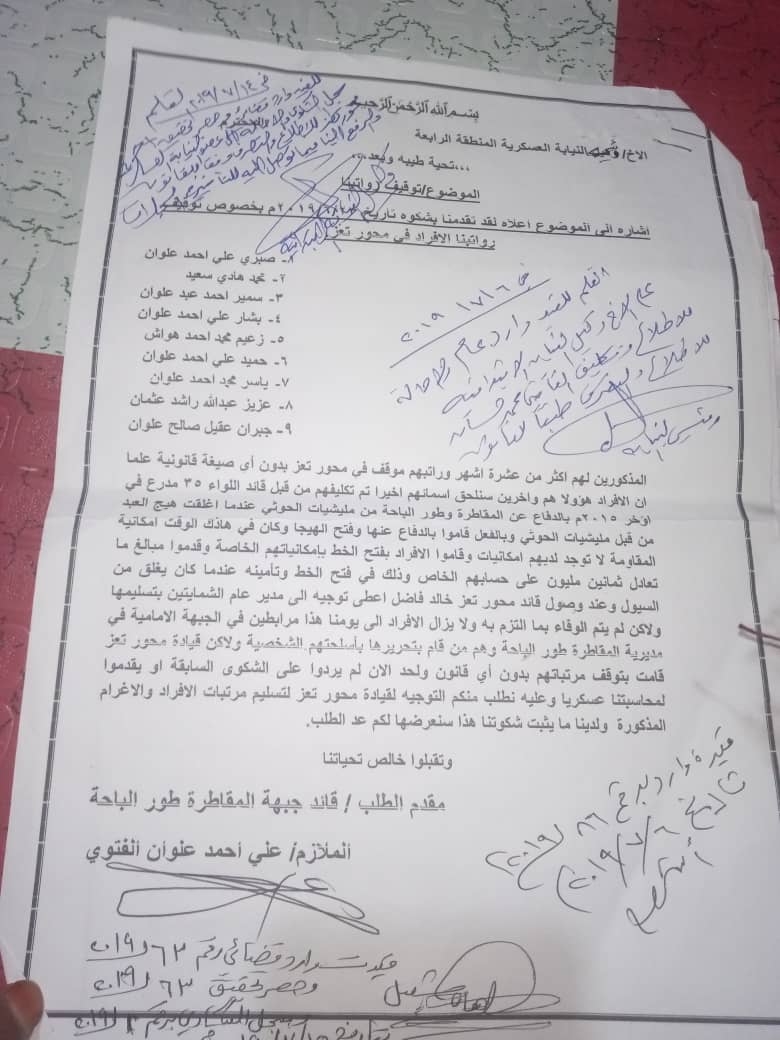 بسم الله الرحمن الرحيم
الاخ/ وكيل النيابة العسكرية المنطقة الرابعة
تحية طيبه وبعد،،،
الموضوع/توقيف رواتبنا
اشاره الى الموضوع اعلاه لقد تقدمنا بشكوه تاريخ ٢٠١٩م بخصوص توقيف
رواتبنا الافراد في محور تعز
١- صبري علي احمد علوان
٢- محمد هادي سعيد
٣- سمير احمد عبد علوان
٤- بشار علي احمد علوان
٥- زعيم محمد احمد هواش
٦- حميد علي احمد علوان
٧- ياسر محمد احمد علوان
٨- عزيز عبدالله راشد عثمان
٩- جبران عقيل صالح علوان
المذكورين لهم اكثر من عشرة اشهر وراتبهم موقف في محور تعز بدون أي صيغة قانونية علما
ان الافراد هؤولا هم واخرين سنلحق اسمائهم اخيرا تم تكليفهم من قبل قائد اللواء ٣٥ مدرع في
اوخر ٢٠١٥م بالدفاع عن المقاطرة وطور الباحة من مليشيات الحوثي عندما اغلقت هيج العبد
من قبل مليشيات الحوثي وبالفعل قاموا بالدفاع عنها وفتح الهيجا وكان في هاذك الوقت امكانية
المقاومة لا توجد لديهم امكانيات وقاموا الافراد بفتح الخط بإمكانياتهم الخاصة وقدموا مبالغ ما
تعادل ثمانين مليون على حسابهم الخاص وذلك في فتح الخط وتأمينه عندما كان يغلق من
السيول وعند وصول قائد محور تعز خالد فاضل اعطى توجيه الى مدير عام الشمايتين بتسليمها
ولاكن لم يتم الوفاء بما التزم به ولا يزال الافراد الى يومنا هذا مرابطين في الجبهة الامامية في
مديرية المقاطرة طور الباحة وهم من قام بتحريرها بأسلحتهم الشخصية ولاكن قيادة محور تعز
قامت بتوقف مرتباتهم بدون أي قانون ولحد الان لم يردوا على الشكوى السابقة او يقدموا
لمحاسبتنا عسكريا وعليه نطلب منكم التوجيه لقيادة محور تعز لتسليم مرتبات الافراد والاغرام
المذكورة ولدينا ما يثبت شكوتنا هذا سنعرضها لكم عد الطلب.
وتقبلوا خالص تحياتنا
مقدم الطلب / قائد جبهة المقاطرة طور الباحة
الملازم/ علي احمد علوان الفتوي
في ١٤/٧/٢٠١٩
في ٦/٧/٢٠١٩
القلم للقيد وارد عام
للاطلاع
طبقا للقانون
تاريخ ٦/٧/٢٠١٩
قيدت وارد قضائي رقم ٦٣ / ٢٠١٩
وحصر تحقيق ٦٣ / ٢٠١٩